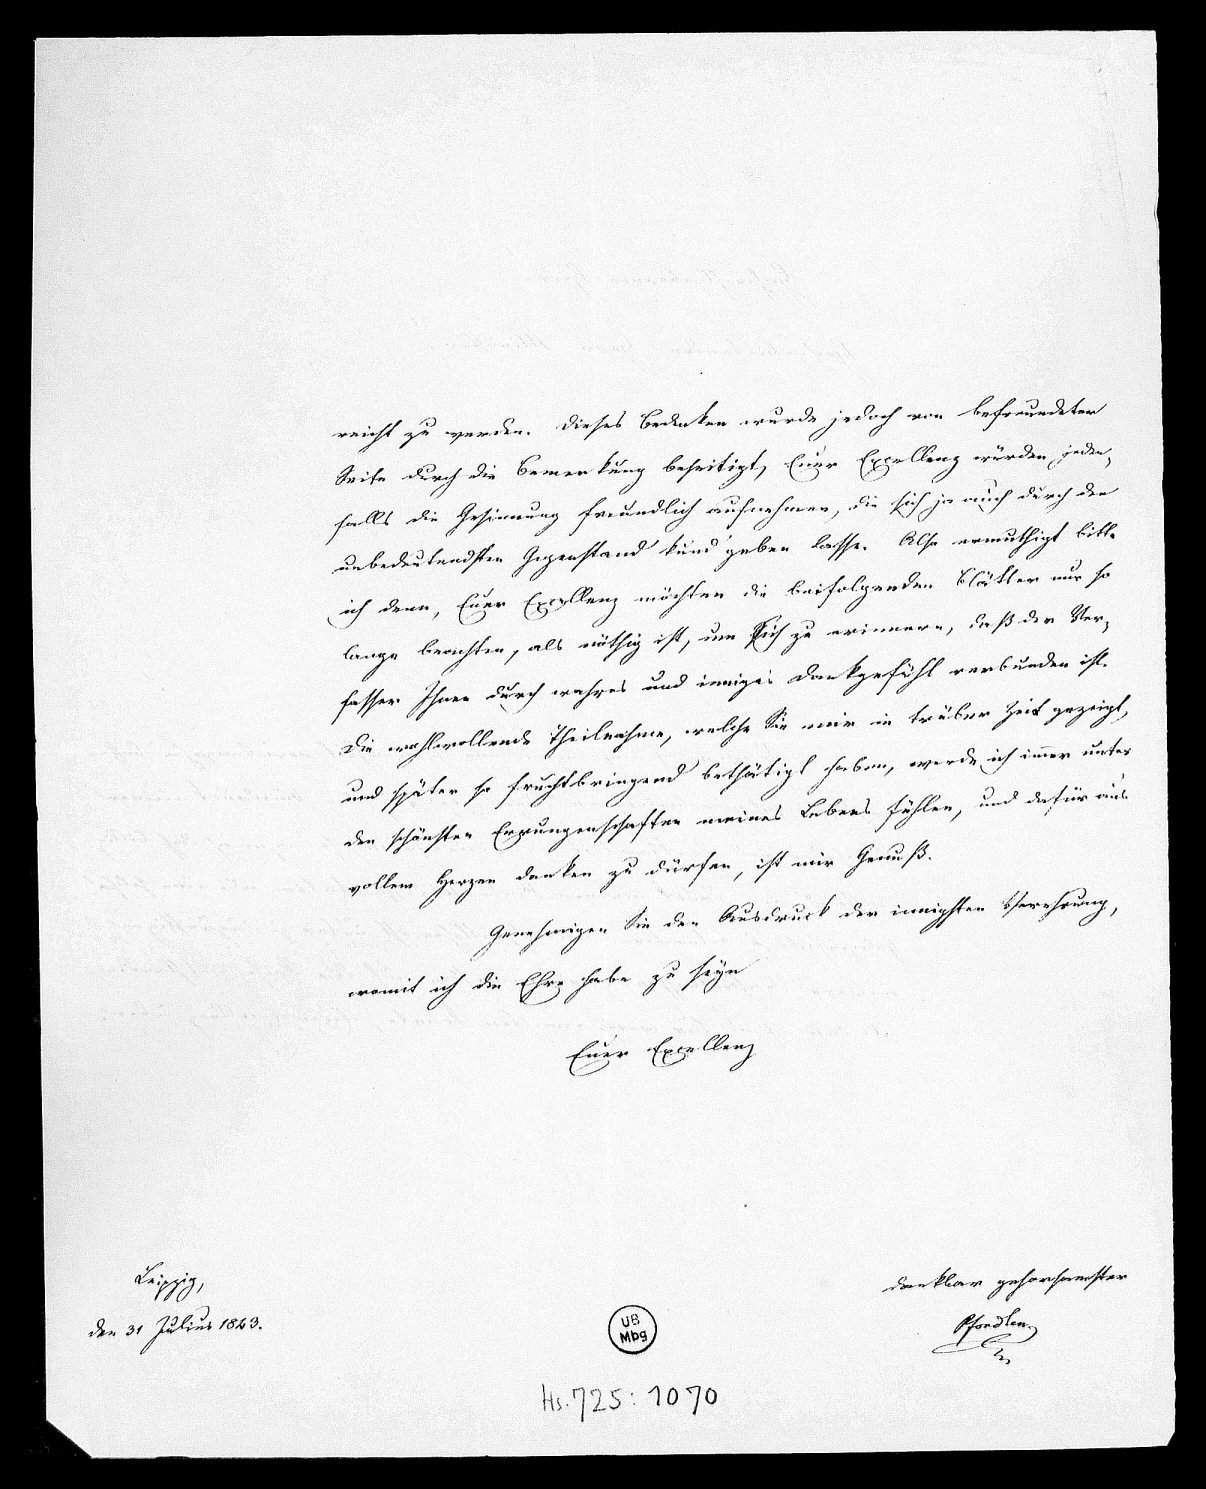 reicht zu werden. Dieses Bedenken wurde jedoch von befreundeter
Seite durch die Bemerkung beseitigt, Euer Excellenz würden jeden-
falls die Gesinnung freundlich aufnehmen, die sich ja auch durch den
unbedeutendsten Gegenstand kund geben lasse. Also ermuthigt bitte
ich denn, Euer Excellenz möchten die beifolgenden Blätter nur so
lange beachten, als nöthig ist, um Sich zu erinnern, daß der Ver-
fasser Ihnen durch wahres und inniges Dankgefühl verbunden ist.
Die wohlwollende Theilnahme, welche Sie mir in trüber Zeit gezeigt,
und später so fruchtbringend bethätigt haben, werde ich immer unter
den schönsten Errungenschaften meines Lebens fühlen, und dafür aus
vollem Herzen danken zu dürfen, ist mir Genuß.
Genehmigen Sie den Ausdruck der innigsten Verehrung,
womit ich die Ehre habe zu seyn
Euer Excellenz
dankbar gehorsamster
Pfordten
Leipzig,
den 31 Julius 1843.
UB
Mbg
Hs. 725: 1070